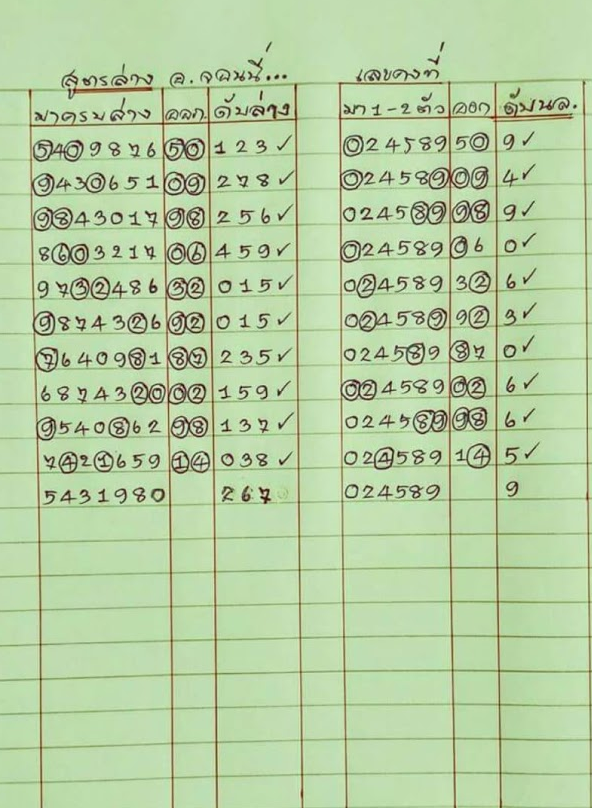 สูตรล่าง อ.จอนนี่... เลขคงที่
มาครบล่าง ออก ดับล่าง มา 1-2 ตัว ออก ดับบนล.
5409876 50 123✓ 024589 50 9✓
9430651 09 278✓ 024589 09 4✓
9843017 98 256✓ 024589 98 9✓
8603217 06 459✓ 024589 06 0✓
9732486 32 015✓ 024589 32 6✓
9874326 92 015✓ 024589 92 3✓
7640981 87 235✓ 024589 87 0✓
6874320 02 159✓ 024589 02 6✓
9540862 98 137✓ 024589 98 6✓
7421659 14 038✓ 024589 14 5✓
5431980 267 024589 9